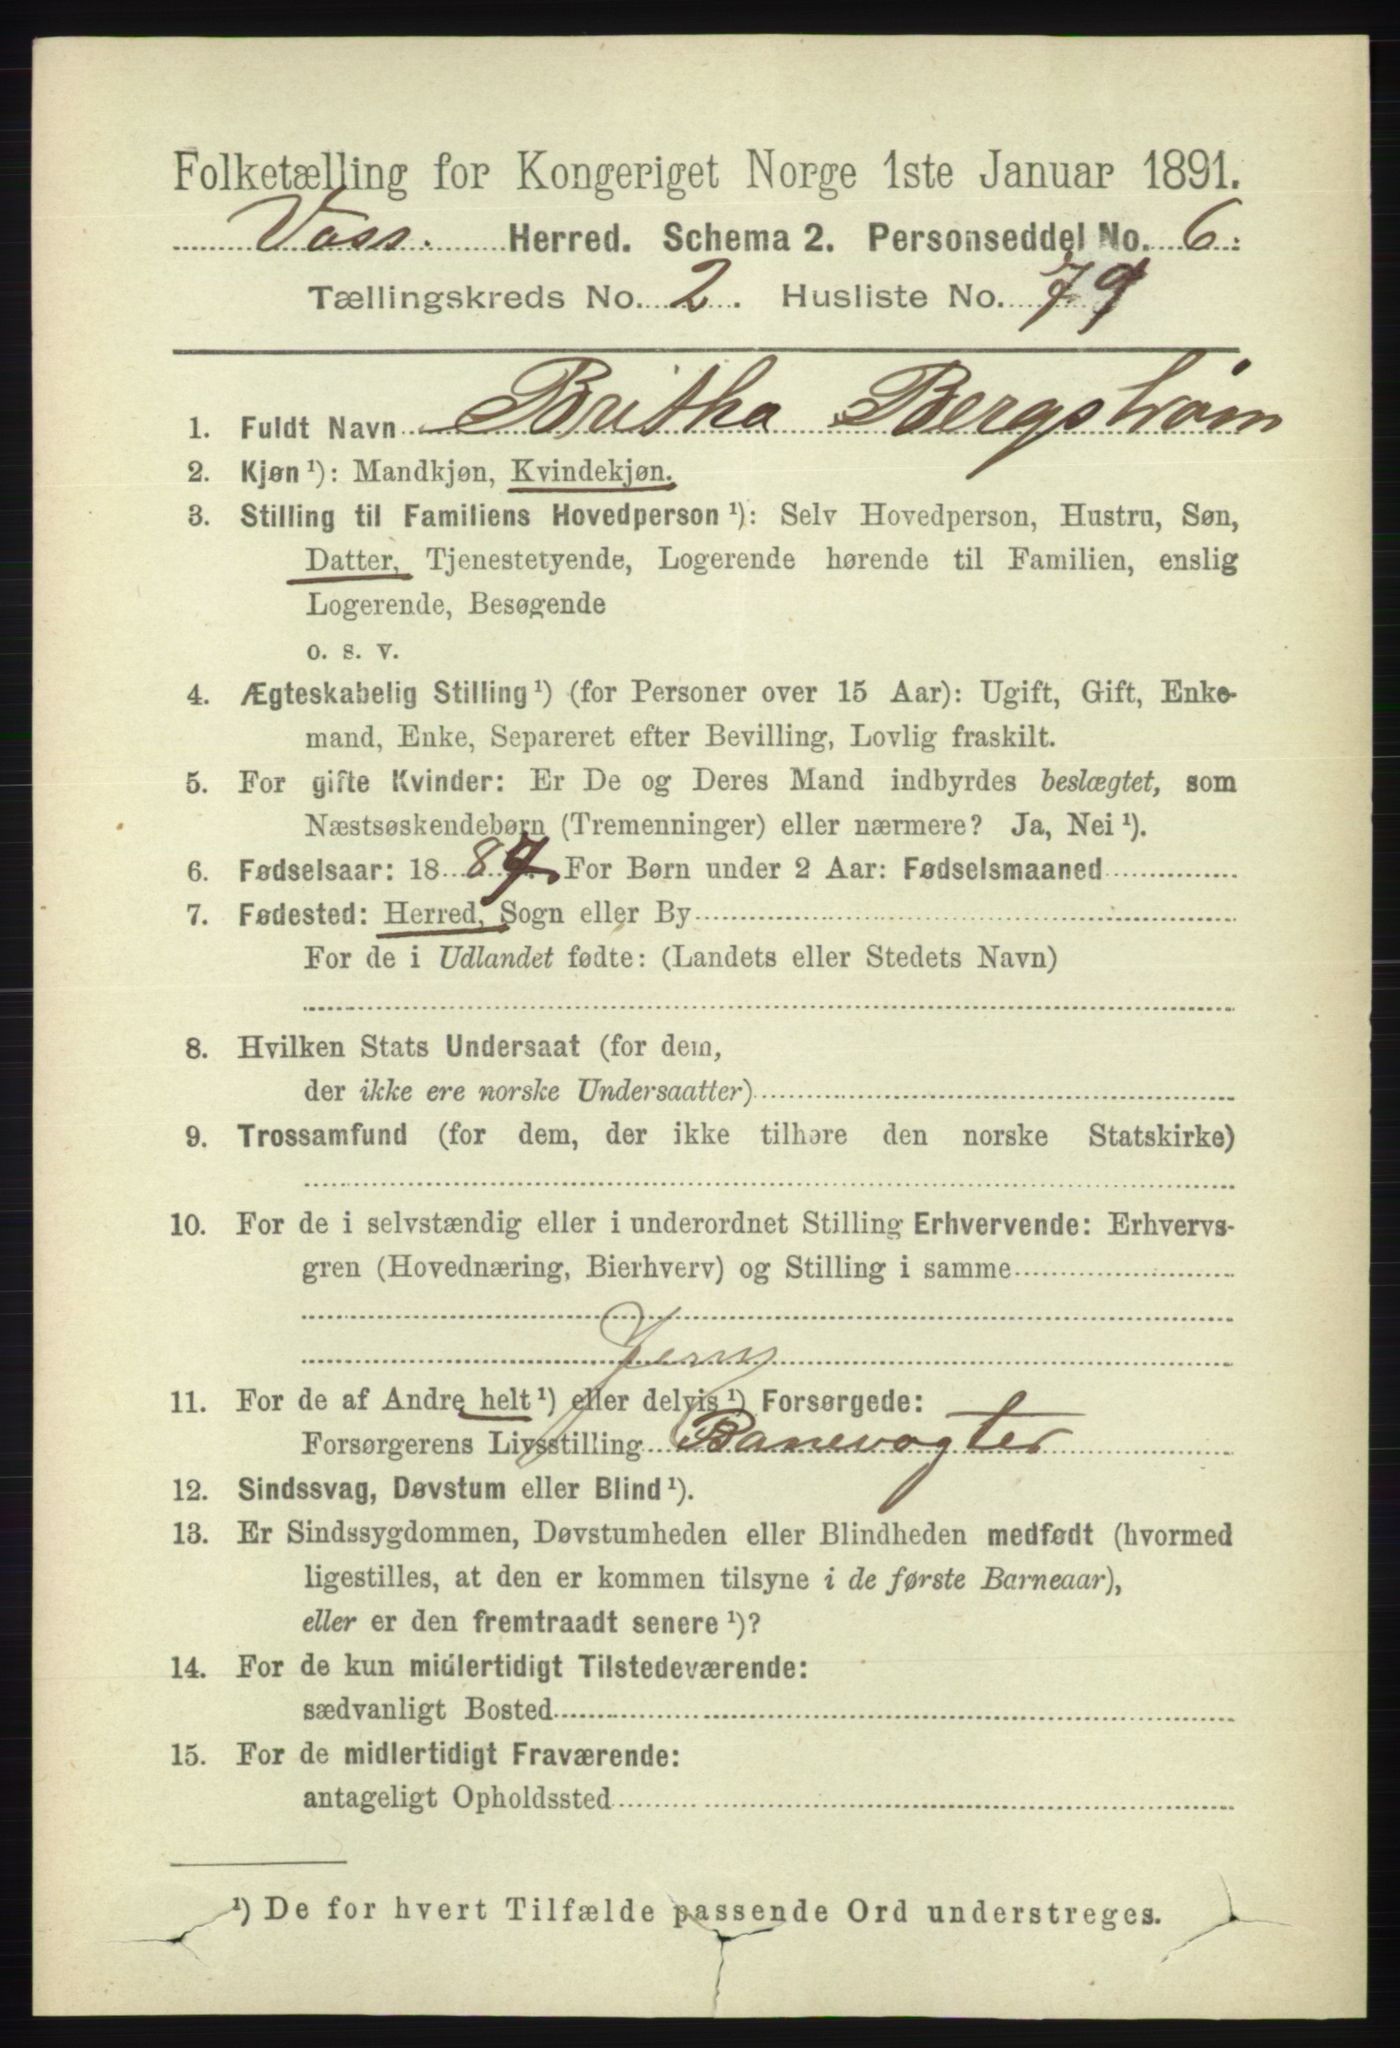 Folketælling for Kongeriget Norge 1ste Januar 1891.
Voss. Herred. Schema 2. Personseddel No. 6.
Tællingskreds No. 2. Husliste No. 79
1. Fuldt Navn Britha Bergstrøm
2. Kjøn ¹): Mandkjøn, Kvindekjøn.
3. Stilling til Familiens Hovedperson ¹): Selv Hovedperson, Hustru, Søn,
Datter, Tjenestetyende, Logerende hørende til Familien, enslig
Logerende, Besøgende
o. s. v.
4. Ægteskabelig Stilling ¹) (for Personer over 15 Aar): Ugift, Gift, Enke-
mand, Enke, Separeret efter Bevilling, Lovlig fraskilt.
5. For gifte Kvinder: Er De og Deres Mand indbyrdes beslægtet, som
Næstsøskendebørn (Tremenninger) eller nærmere? Ja, Nei ¹).
6. Fødselsaar: 1887. For Børn under 2 Aar: Fødselsmaaned
7. Fødested: Herred, Sogn eller By
For de i Udlandet fødte: (Landets eller Stedets Navn)
8. Hvilken Stats Undersaat (for dem,
der ikke ere norske Undersaatter)
9. Trossamfund (for dem, der ikke tilhøre den norske Statskirke)
10. For de i selvstændig eller i underordnet Stilling Erhvervende: Erhvervs-
gren (Hovednæring, Bierhverv) og Stilling i samme
Jern
11. For de af Andre helt ¹) eller delvis ¹) Forsørgede:
Forsørgerens Livsstilling Banevogter
12. Sindssvag, Døvstum eller Blind ¹).
13. Er Sindssygdommen, Døvstumheden eller Blindheden medfødt (hvormed
ligestilles, at den er kommen tilsyne i de første Barneaar),
eller er den fremtraadt senere ¹)?
14. For de kun midlertidigt Tilstedeværende:
sædvanligt Bosted
15. For de midlertidigt Fraværende:
antageligt Opholdssted
¹) De for hvert Tilfælde passende Ord understreges.